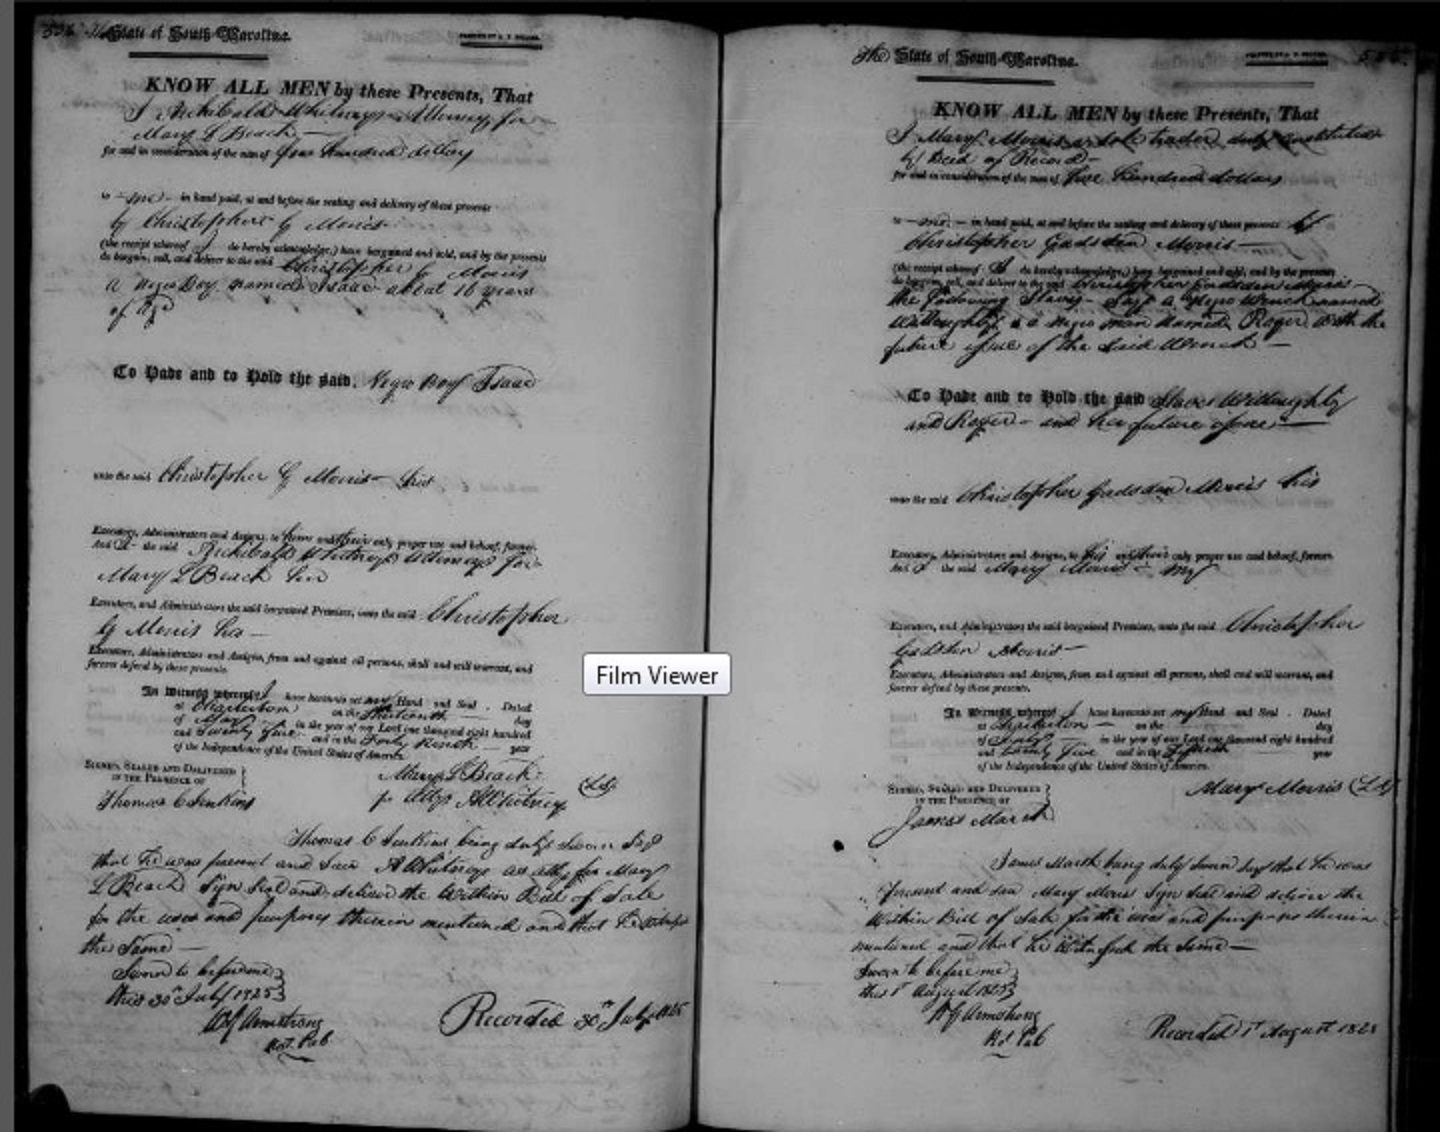 The State of South-Carolina.
KNOW ALL MEN by these Presents, That
I Archibald Whitney Attorney for
Mary L Beach —
for and in consideration of the sum of four hundred dollars
to — me — in hand paid, at and before the sealing and delivery of these presents
by Christopher G Morris
(the receipt whereof I do hereby acknowledge,) have bargained and sold, and by these presents
do bargain, sell, and deliver to the said Christopher G Morris
a Negro Boy named Isaac about 16 years
of age
To Have and to Hold the said, Negro Boy Isaac
unto the said Christopher G Morris his
Executors, Administrators and Assigns, to him and their only proper use and behoof, forever.
And I the said Archibald Whitney Attorney for
Mary L Beach her
Executors, and Administrators the said bargained Premises, unto the said Christopher
G Morris his —
Executors, Administrators and Assigns, from and against all persons, shall and will warrant, and
forever defend by these presents.
In Witness whereof, I have hereunto set my Hand and Seal . Dated
at Charleston on the Thirteenth day
of May in the year of our Lord one thousand eight hundred
and Twenty five and in the Forty Ninth — year
of the Independence of the United States of America.
SIGNED, SEALED AND DELIVERED
IN THE PRESENCE OF
Thomas C Jenkins
Mary L Beach
pr Atty A Whitney
(LS)
Thomas C Jenkins being duly sworn says
that he was present and saw A Whitney as atty for Mary
L Beach Sign Seal and deliver the Within Bill of Sale
for the uses and purposes therein mentioned and that he
the Same —
Sworn to before me
this 30th July 1825
Armstrong
Not. Pub
Recorded 30th July 1825
Film Viewer
The State of South-Carolina.
KNOW ALL MEN by these Presents, That
I Mary Morris a sole trader duly constituted
by Deed of Record —
for and in consideration of the sum of five hundred dollars
to — me — in hand paid, at and before the sealing and delivery of these presents by
Christopher Gadsden Morris —
(the receipt whereof I do hereby acknowledge,) have bargained and sold, and by these presents
do bargain, sell, and deliver to the said Christopher Gadsden Morris
the following Slaves — Say a Negro Wench named
Willoughby & a Negro man named Roger With the
future issue of the said Wench —
To Have and to Hold the said Slaves Willoughby
and Roger — and her future issue —
unto the said Christopher Gadsden Morris his
Executors, Administrators and Assigns, to his and their only proper use and behoof, forever.
And I the said Mary Morris — my
Executors, and Administrators the said bargained Premises, unto the said Christopher
Gadsden Morris —
Executors, Administrators and Assigns, from and against all persons, shall and will warrant, and
forever defend by these presents.
In Witness whereof I have hereunto set my Hand and Seal . Dated
at Charleston — on the day
of July — in the year of our Lord one thousand eight hundred
and twenty five and in the Fiftieth year
of the Independence of the United States of America.
SIGNED, SEALED AND DELIVERED
IN THE PRESENCE OF
James Marsh
Mary Morris (LS)
James Marsh being duly sworn says that he was
present and saw Mary Morris Sign seal and deliver the
Within Bill of Sale for the uses and purposes therein
mentioned and that he Witnessed the Same —
Sworn to before me
this 1st August 1825
Armstrong
Not Pub
Recorded 1st August 1825